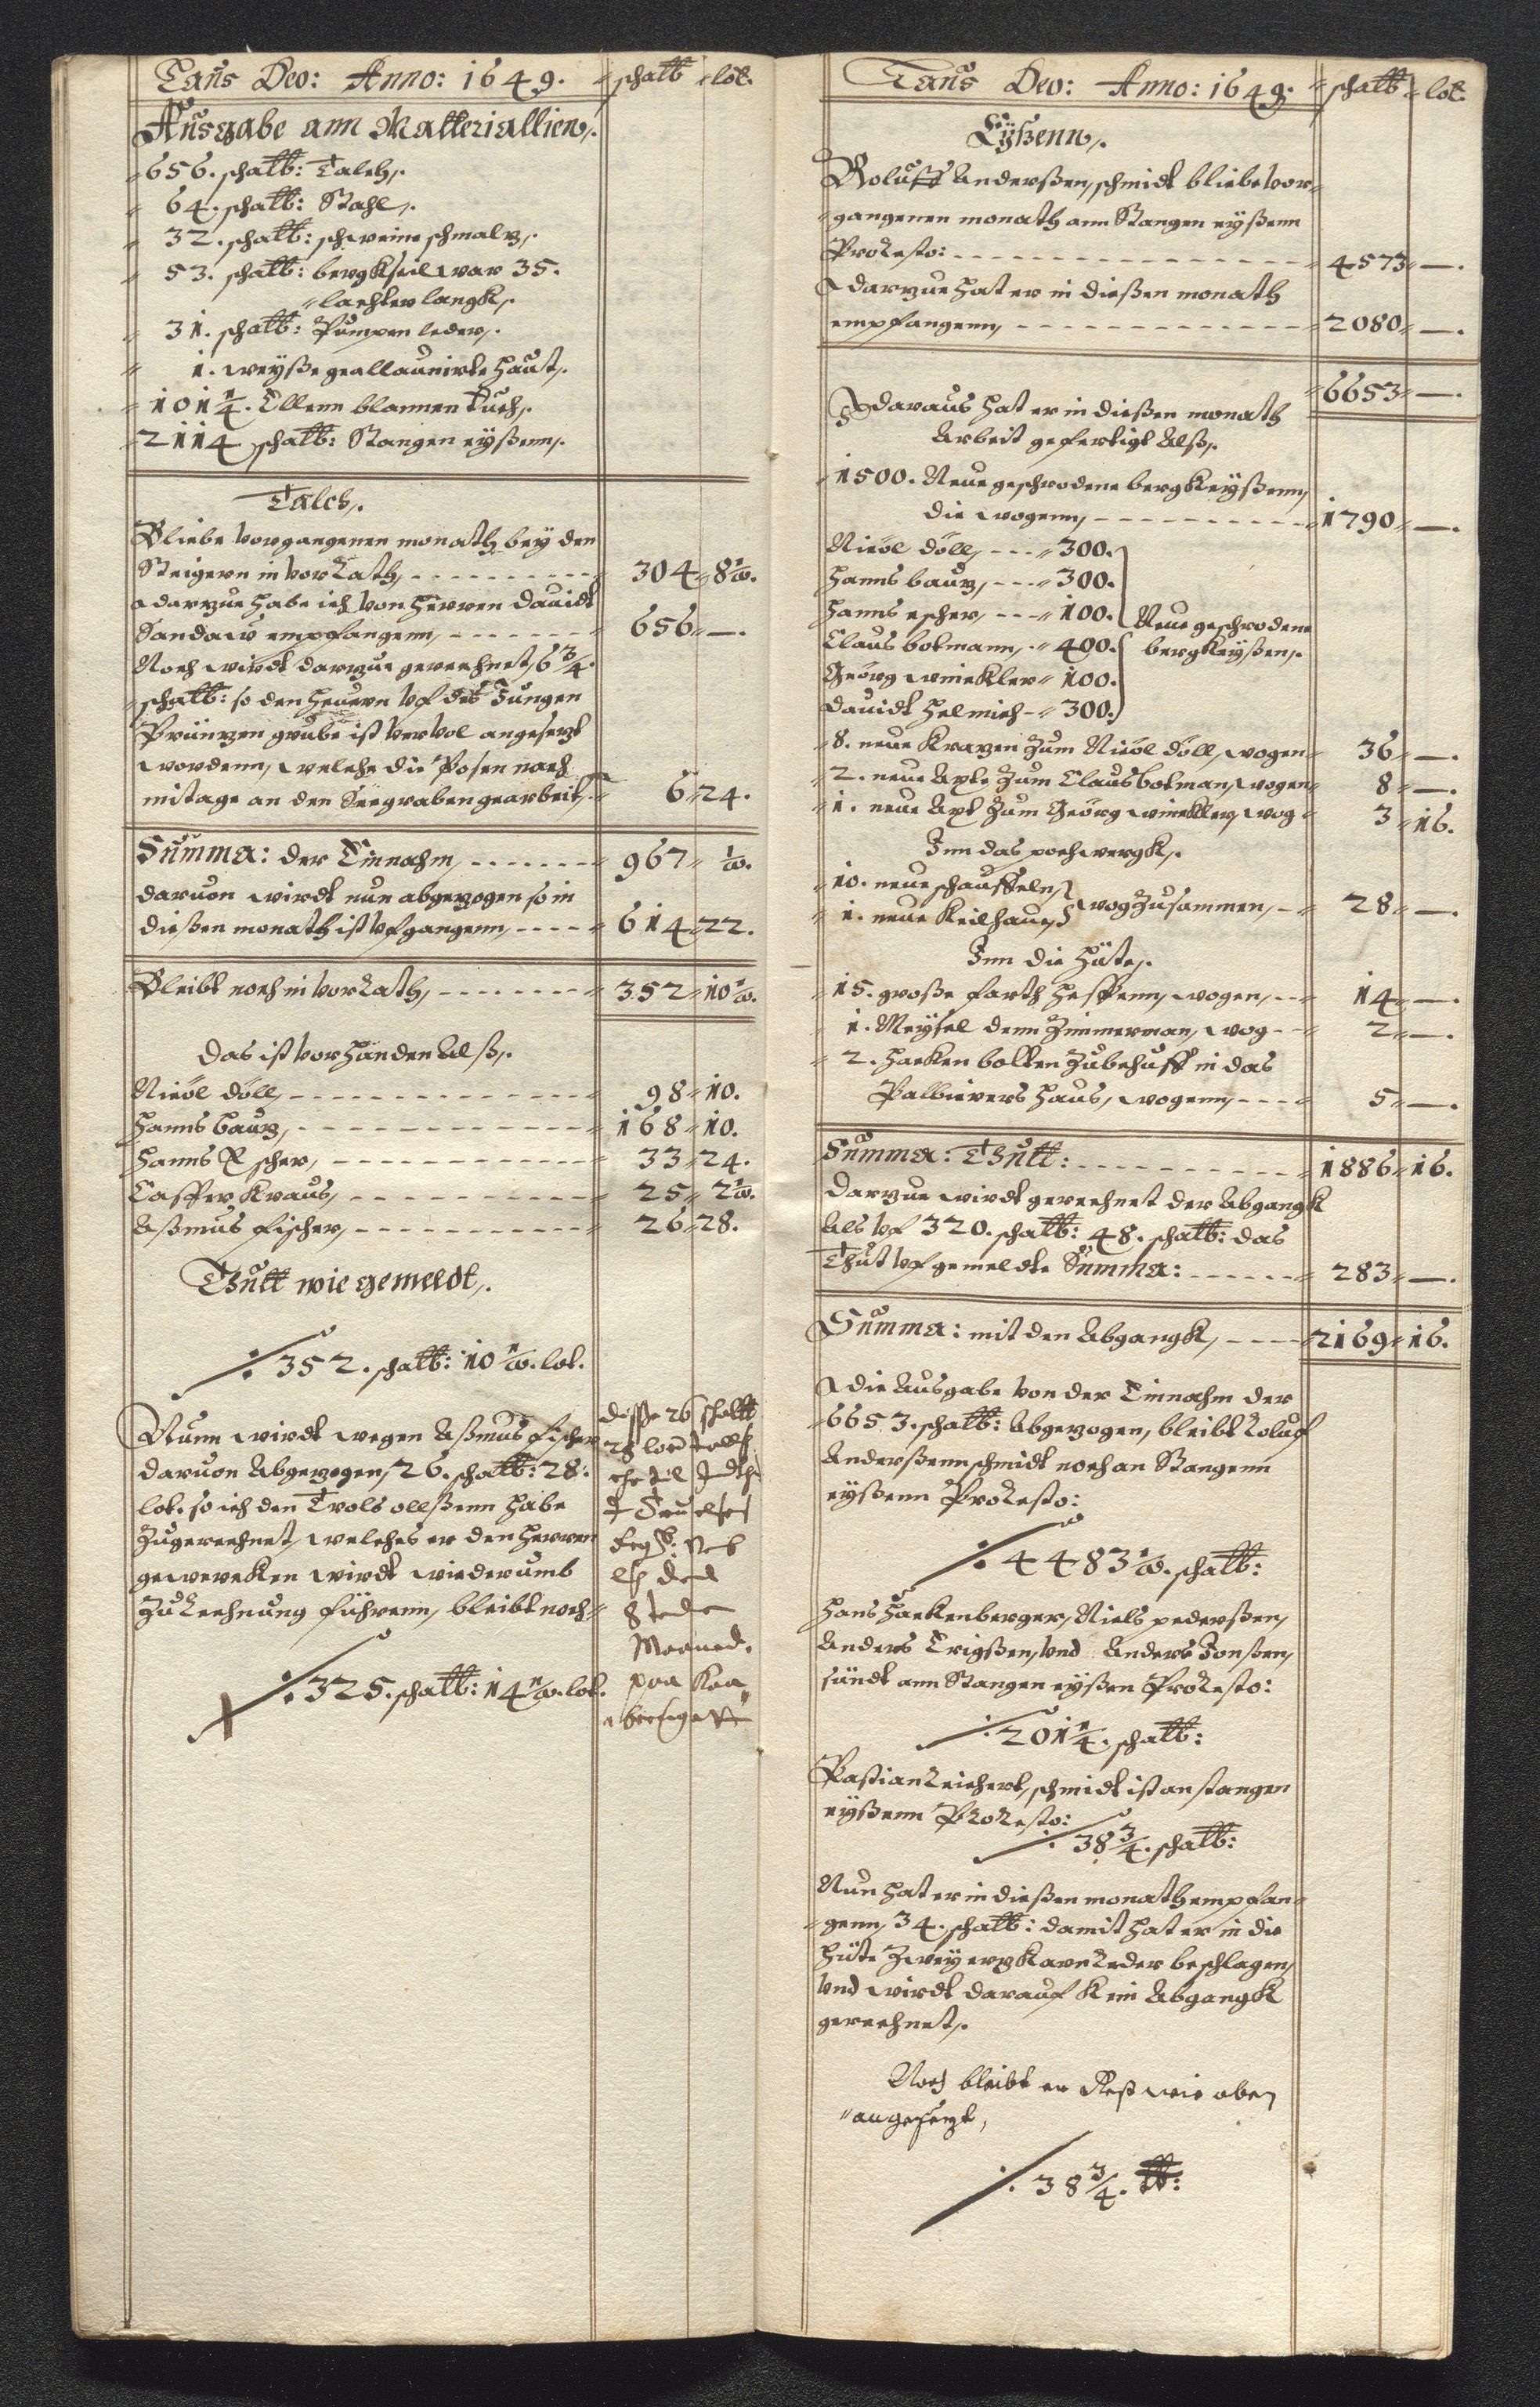 Laus Deo: Anno: 1649. schal℔ lot.
Ausgabe ann Matteriallien,.
656. schal℔: Talch,.
64. schal℔: Stahl,.
32. schal℔: schweine schmalz,.
53. schal℔: bergkseil war 35.
lachter langk,.
31. schal℔: Pumpen leder,.
1. weyße geallaunirte Haut,.
101 1/4. Ellenn blannen Tuch,.
2114 schal℔: Stangen eyßenn,.
Talch,.
Bliebe vorgangenen monath bey den
Steigern in vorrath, 304 8 1/2.
darzue habe ich von Herren Dauidt
Sandaw empfangenn, 656 —.
Noch wirdt darzue gerechnet, 6 3/4.
schal℔: so den heuern vf des Jungen
Printzen grube ist ver vol angesetzt
wordenn, welche die Posen nach
mitage an den Seegraben gearbeit, 6 24.
Summa: der Einnahm, 967 1/2.
daruon wirdt nun abgezogen so in
dießen monath ist vfgangenn, 614 22.
Bleibt noch in vorrath, 352 10 1/2.
Das ist vorhanden Alß,.
Nicol döll, 98 10.
Hanns bautz, 168 10.
Hanns Escher, 33 24.
Casper Kraus, 25 2 1/2.
Aßmus fischer, 26 28.
Thutt wie gemeldt,.
352. schal℔: 10 1/2. lot.
Nunn wirdt wegen Aßmus fischer
daruon Abgezogen, 26. schal℔: 28.
lot. so ich den Trols ollßenn habe
Zugerechnet, welches er den Herren
gewercken wirdt wiederumb
Zu Rechnung führenn, bleibt noch
325. schal℔: 14 1/2. lot.
disse 26 schal℔
28 lod
Maaned.
paa
Laus Deo: Anno: 1649. schal℔ lot.
Eyßenn,.
Roluff Anderßen, schmidt bliebe vor-
gangenen monath ann Stangen eyßenn
Pro Resto: 4573 —.
darzue hat er in dießen monath
empfangenn, 2080 —.
6653 —.
daraus hat er in dießen monath
Arbeit gefertigt Alß,.
1500. Neue geschrodene bergkeyßenn,
die wogenn, 1790 —.
Nicol döll, 300.
Hanns bautz, 300.
Hanns escher, 100. Neue geschrodene
Claus botmann, 400. bergkeyßen,.
Geörg winckler 100.
Dauidt Helmich 300.
8. neue Kratzen Zum Nicol döll, wogen 36 —.
2. neue Axte Zum Claus botman, wogen 8 —.
1. neue Axt Zum Geörg winckler, wog 3 16.
Inn das pochwergk,.
10. neue schauffeln,
1. neue Keilhaue, wog Zusammen, 28 —.
Inn die Hüte,.
15. große farth Heffenn, wogen, 14 —.
1. Meysel denn Zimmerman, wog 2 —.
2. Hacken bolten Zubehuff in das
Palbierers Haus, wogenn, 5 —.
Summa: Thutt: 1886 16.
Darzue wirdt gerechnet der Abgangk
Als vf 320. schal℔: 48. schal℔: das
Thut vf gemeldte Summa: 283 —.
Summa: mit den Abgangk, 2169 16.
die Ausgabe von der Einnahm der
6653. schal℔: Abgezogen, bleibt Roluf
Anderßenn schmidt noch an Stangenn
eyßenn Pro Resto:
4483 1/2. schal℔:
Hans Hackenberger, Niels pederßen,
Anders Trigßen, vnd Anders Jonßen,
sündt ann Stangen eyßen Pro Resto:
201 1/4. schal℔:
Pastian Reichert, schmidt ist an stangen
eyßenn Pro Resto:
38 3/4. schal℔:
Nun hat er in dießen monath empfan-
genn, 34. schal℔: damit hat er in die
Hüte Zwey ertzkarn Reder beschlagen,
vnd wirdt darauf Kein Abgangk
gerechnet,.
Noch bleibt er Rest wie oben
angesetzt,
38 3/4. ℔: